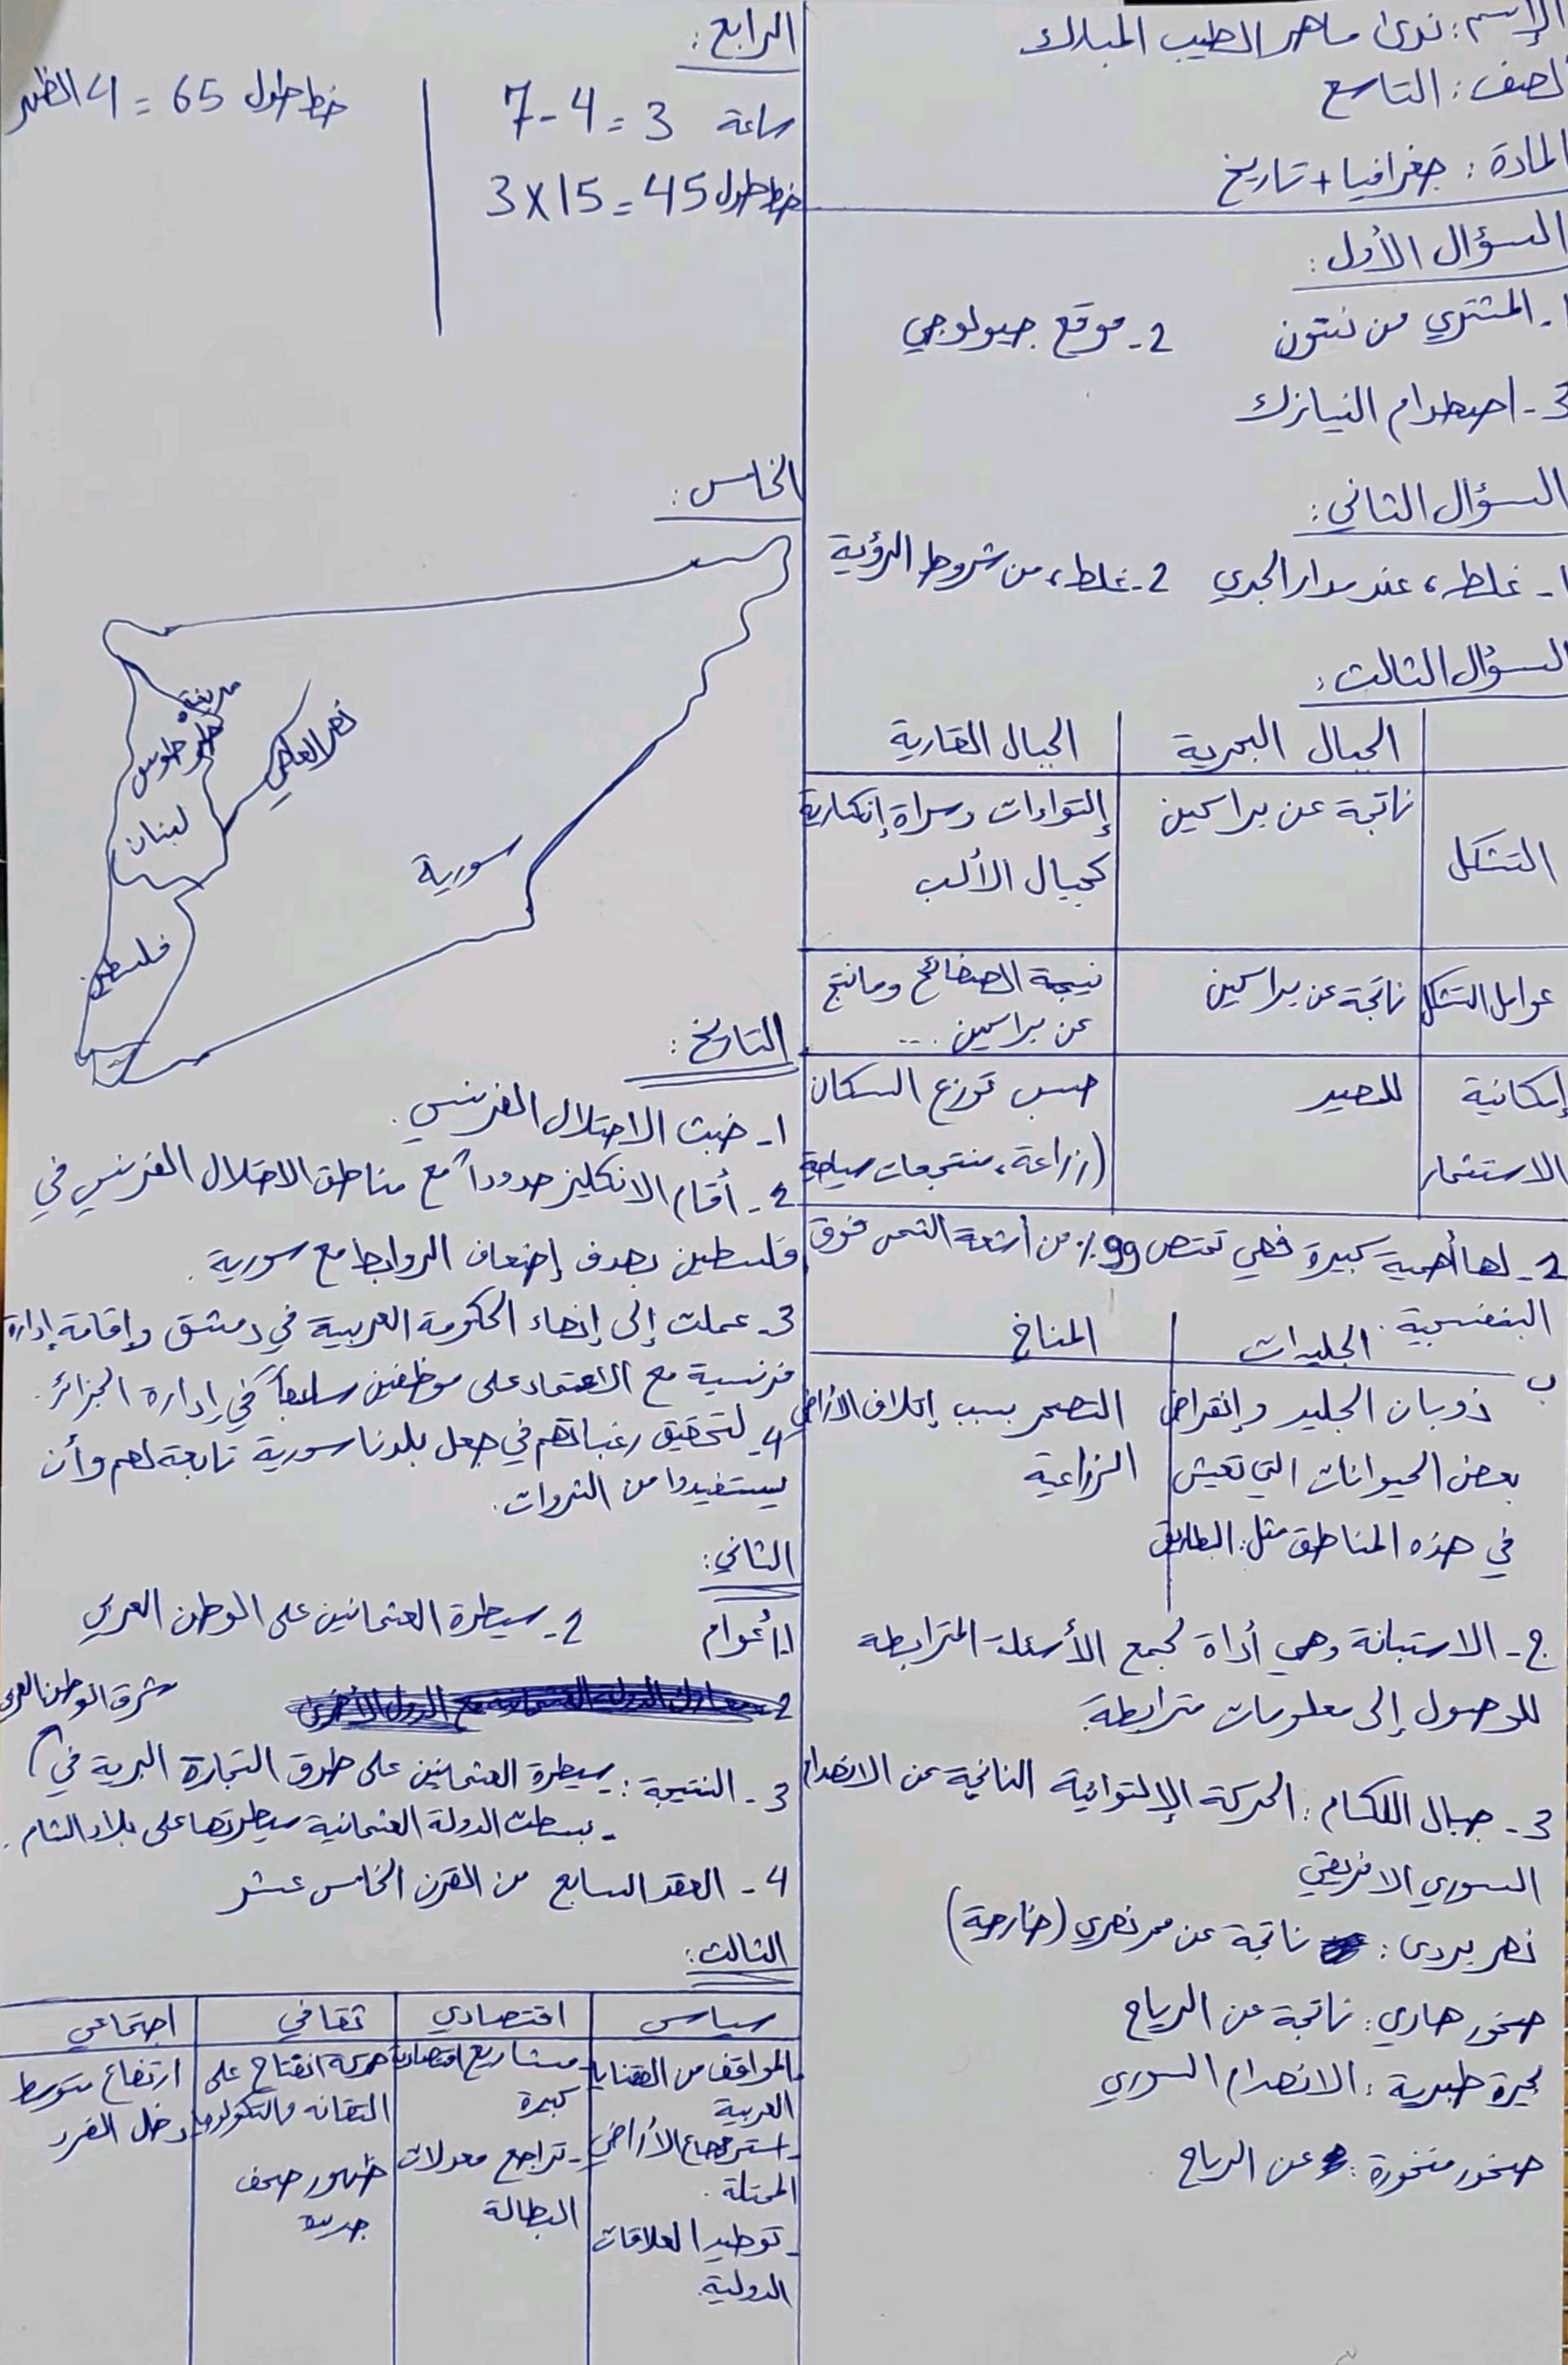 الإسم: ندى ماهر الطيب المبارك
الصف: التاسع
المادة: جغرافيا + تاريخ
السؤال الأول:
1- المشتري من نبتون 2- موقع جيولوجي
3- اصطدام النيازك
السؤال الثاني:
1- غلط، عند مدار الجدي 2- غلط، من شروط الرؤية
السؤال الثالث:
الجبال البحرية الجبال القارية
التشكل ناتجة عن براكين إلتواءات وسراة إنكسارية
كجبال الألب
عوامل التشكل ناتجة عن براكين نتيجة الصفائح وما نتج
عن براكين ...
إمكانية للصيد حسب توزع السكان
الاستثمار (زراعة، منتجعات سياحة
2- لها أهمية كبيرة فهي تمتص 99٪ من أشعة الشمس فوق
البنفسجية.
ب الجليدات المناخ
ذوبان الجليد وإنقراض التصحر بسبب إتلاف الأراضي
بعض الحيوانات التي تعيش الزراعية
في هذه المناطق مثل: البطاريق
ج- الاستبانة وهي أداة لجمع الأسئلة المترابطة
للوصول إلى معلومات مترابطة.
3- جبال اللكام: الحركة الإلتوائية الناتجة عن الانهدام
السوري الافريقي
نهر بردى: ناتجة عن ممر نهري (خارجة)
صخور هاري: ناتجة عن الرياح
بحيرة طبرية: الانهدام السوري
صخور منخورة: عن الرياح
الرابع:
7-4=3 ساعة
3×15=45 خط طول
خط طول 65 = 4 الظهر
الخامس:
مدينة
طرطوس
نهر العاصي
لبنان
سورية
فلسطين
التاريخ:
1- خبث الاحتلال الفرنسي.
2- أقام الانكليز حدوداً مع مناطق الاحتلال الفرنسي في
فلسطين بهدف إضعاف الروابط مع سورية.
3- عملت إلى إنهاء الحكومة العربية في دمشق وإقامة إدارة
فرنسية مع الاعتماد على موظفين سابقاً في إدارة الجزائر.
4- لتحقيق رغباتهم في جعل بلدنا سورية تابعة لهم وأن
يستفيدوا من الثروات.
الثاني:
1- أعوام 2- سيطرة العثمانين على الوطن العربي
شرق الوطن العربي
3- النتيجة: سيطرة العثمانين على طرق التجارة البرية في
- بسطت الدولة العثمانية سيطرتها على بلاد الشام.
4- العقد السابع من القرن الخامس عشر
الثالث:
سياسي اقتصادي ثقافي اجتماعي
- المواقف من القضايا - مشاريع اقتصادية حركة انفتاح على ارتفاع متوسط
العربية كبيرة التقانة والتكنولوجيا دخل الفرد
- استرجاع الأراضي - تراجع معدلات ظهور صحف
المحتلة. البطالة جديدة
- توطيد العلاقات
الدولية.